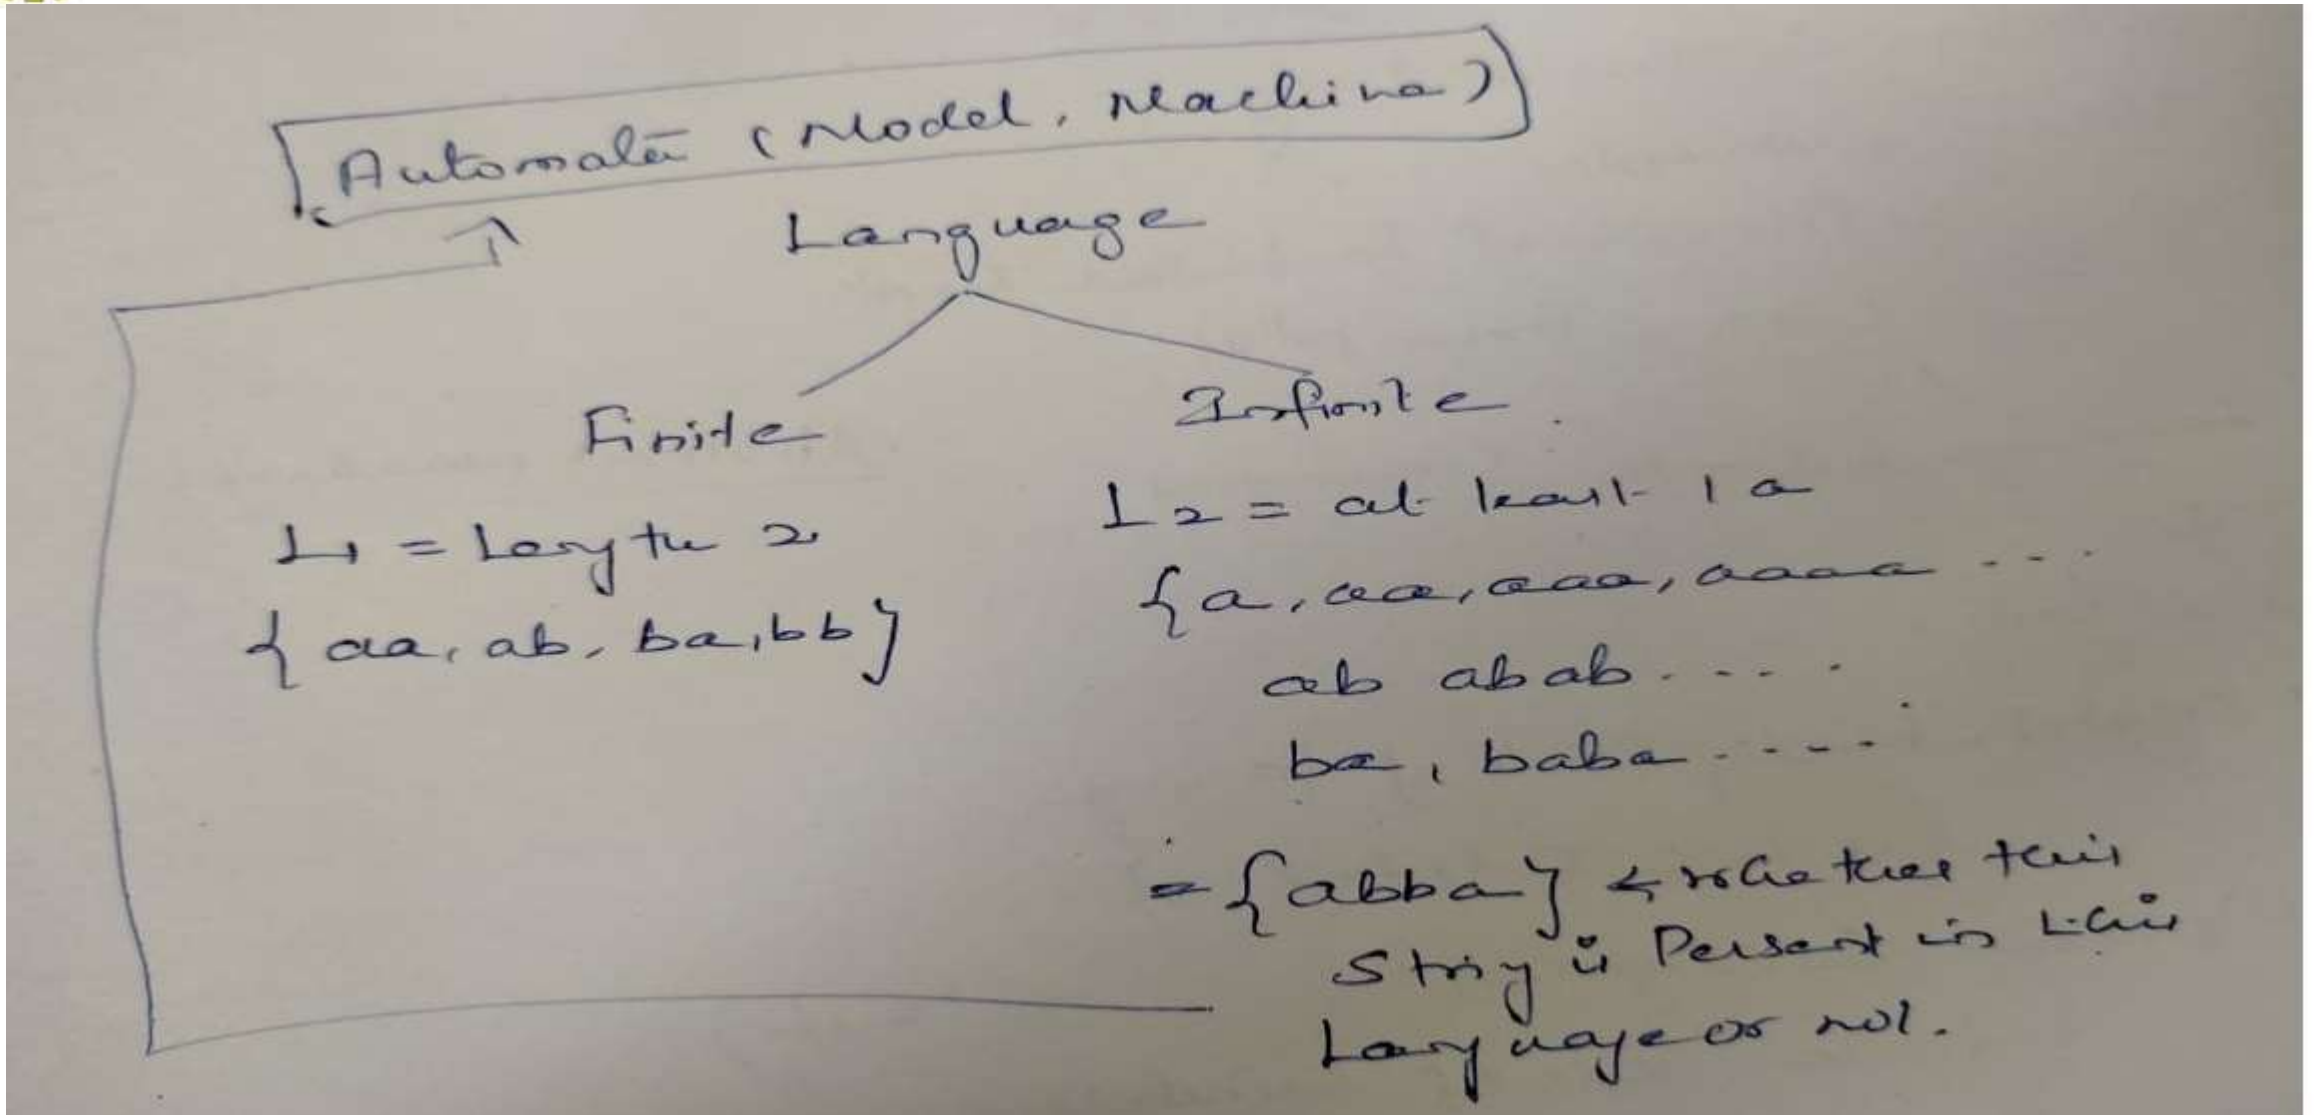 Automata (Model, Machine)
Language
Finite
Infinite.
L1 = Length 2
{aa, ab, ba, bb}
L2 = at least 1 a
{a, aa, aaa, aaaa ...
ab abab.....
ba, baba.....
= {abba} ← whether this
string is Persent in this
Language or not.